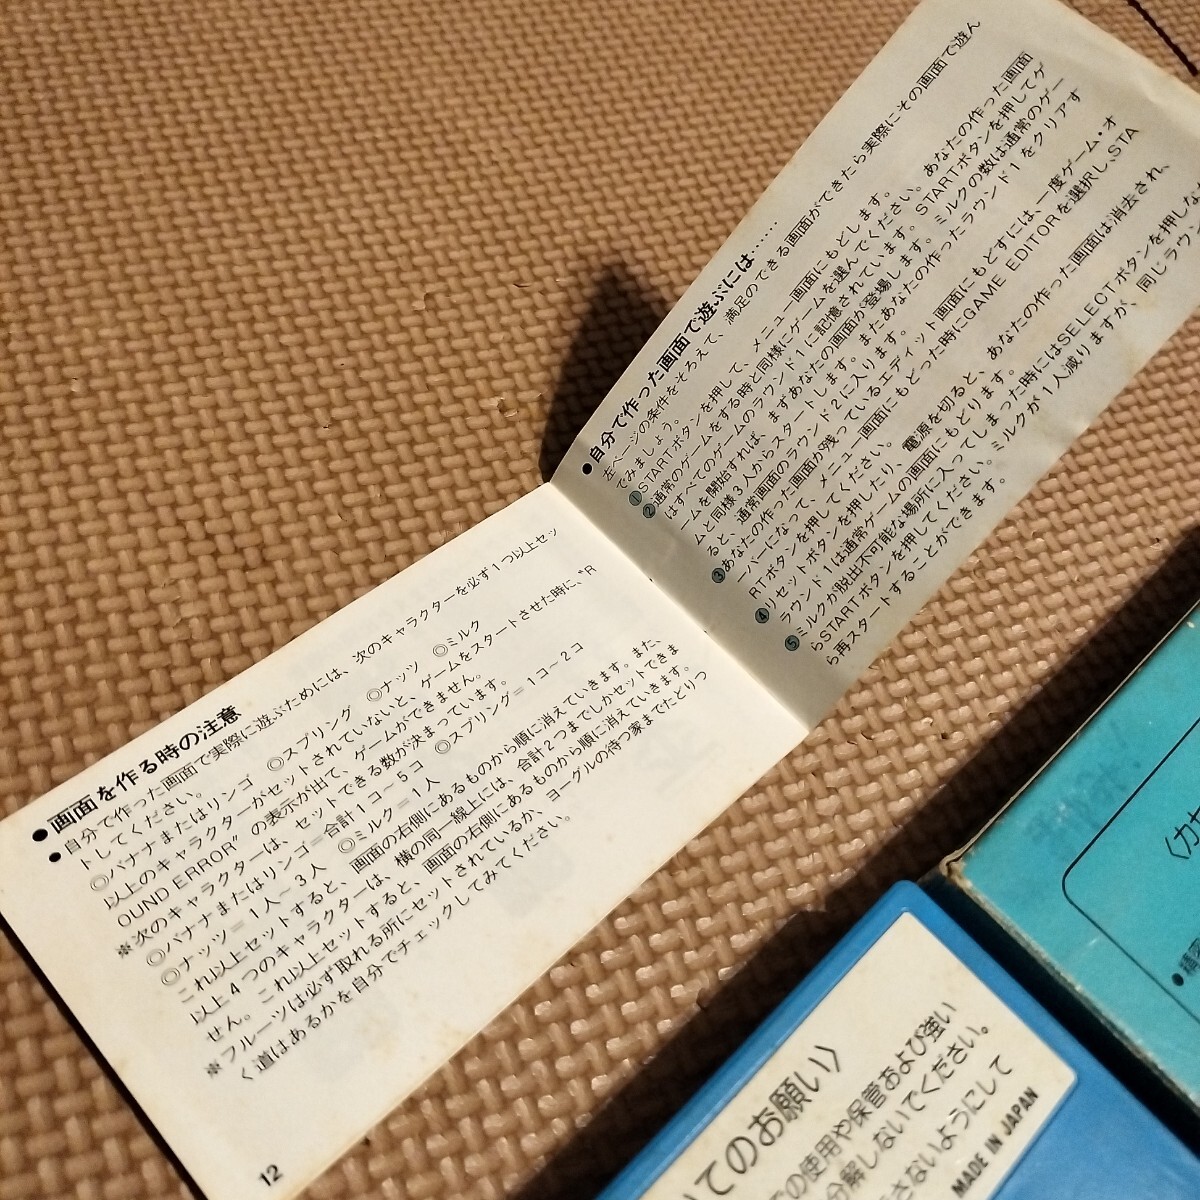 ●画面を作る時の注意
●自分で作った画面で実際に遊ぶためには、次のキャラクターを必ず1つ以上セッ
トしてください。
◎バナナまたはリンゴ ◎スプリング ◎ナッツ ◎ミルク
以上のキャラクターがセットされていないと、ゲームをスタートさせた時に、〝R
OUND ERROR〟の表示が出て、ゲームができません。
※次のキャラクターは、セットできる数が決まっています。
◎バナナまたはリンゴ=合計1コ〜5コ ◎スプリング=1コ〜2コ
◎ナッツ=1人〜3人 ◎ミルク=1人
これ以上セットすると、画面の右側にあるものから順に消えていきます。また、
以上4つのキャラクターは、横の同一線上には、合計2つまでしかセットできま
せん。これ以上セットすると、画面の右側にあるものから順に消えていきます。
※フルーツは必ず取れる所にセットされているか、ヨーグルの待つ家までたどりつ
く道はあるかを自分でチェックしてみてください。
12
●自分で作った画面で遊ぶには……
左ページの条件をそろえて、満足のできる画面ができたら実際にその画面で遊ん
でみましょう。
①STARTボタンを押して、メニュー画面にもどします。
②通常のゲームをする時と同様にゲームを選んでください。あなたの作った画面
はすべてのゲームのラウンド1に記憶されています。STARTボタンを押してゲ
ームを開始すれば、まずあなたの画面が登場します。ミルクの数は通常のゲー
ムと同様3人からスタートします。またあなたの作ったラウンド1をクリアす
ると、通常画面のラウンド2に入ります。
③あなたの作った画面が残っているエディット画面にもどすには、一度ゲーム・オ
ーバーになって、メニュー画面にもどった時にGAME EDITORを選択し、STA
RTボタンを押してください。
④リセットボタンを押したり、電源を切ると、あなたの作った画面は消去され、
ラウンド1は通常ゲームの画面にもどります。
⑤ミルクが脱出不可能な場所に入ってしまった時にはSELECTボタンを押しな
らSTARTボタンを押してください。ミルクが1人減りますが、同じラウン
ら再スタートすることができます。
てのお願い〉
の使用や保管および強い
分解しないでください。
さないようにして
MADE IN JAPAN
〈カセ